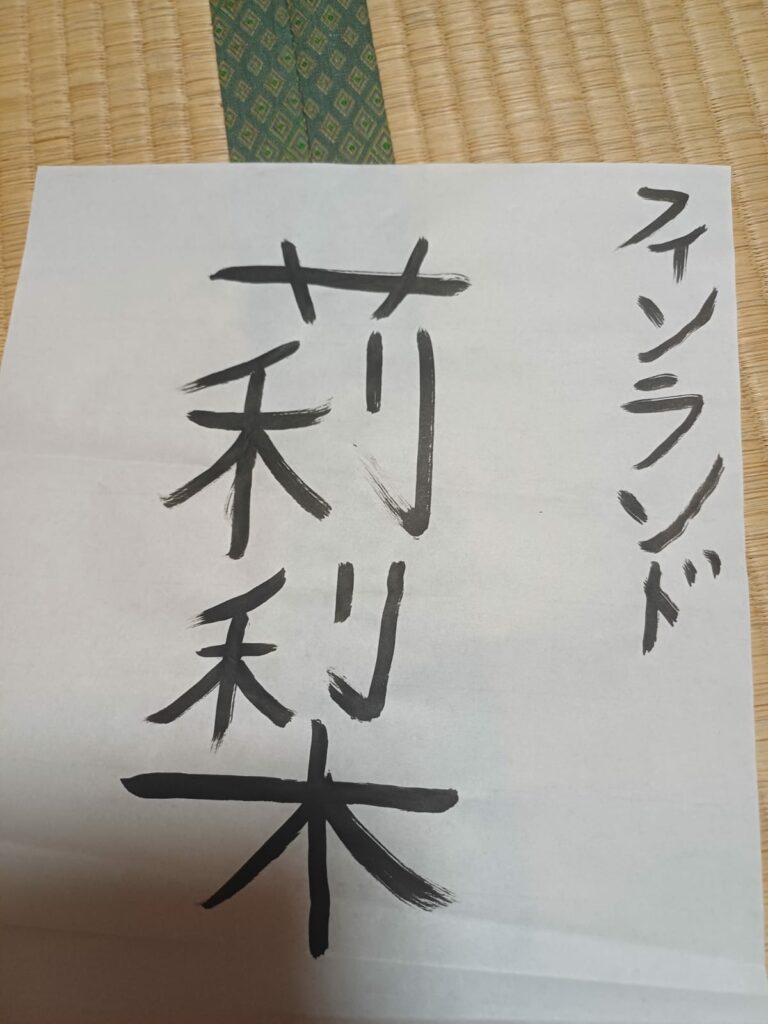 フィンランド
莉梨